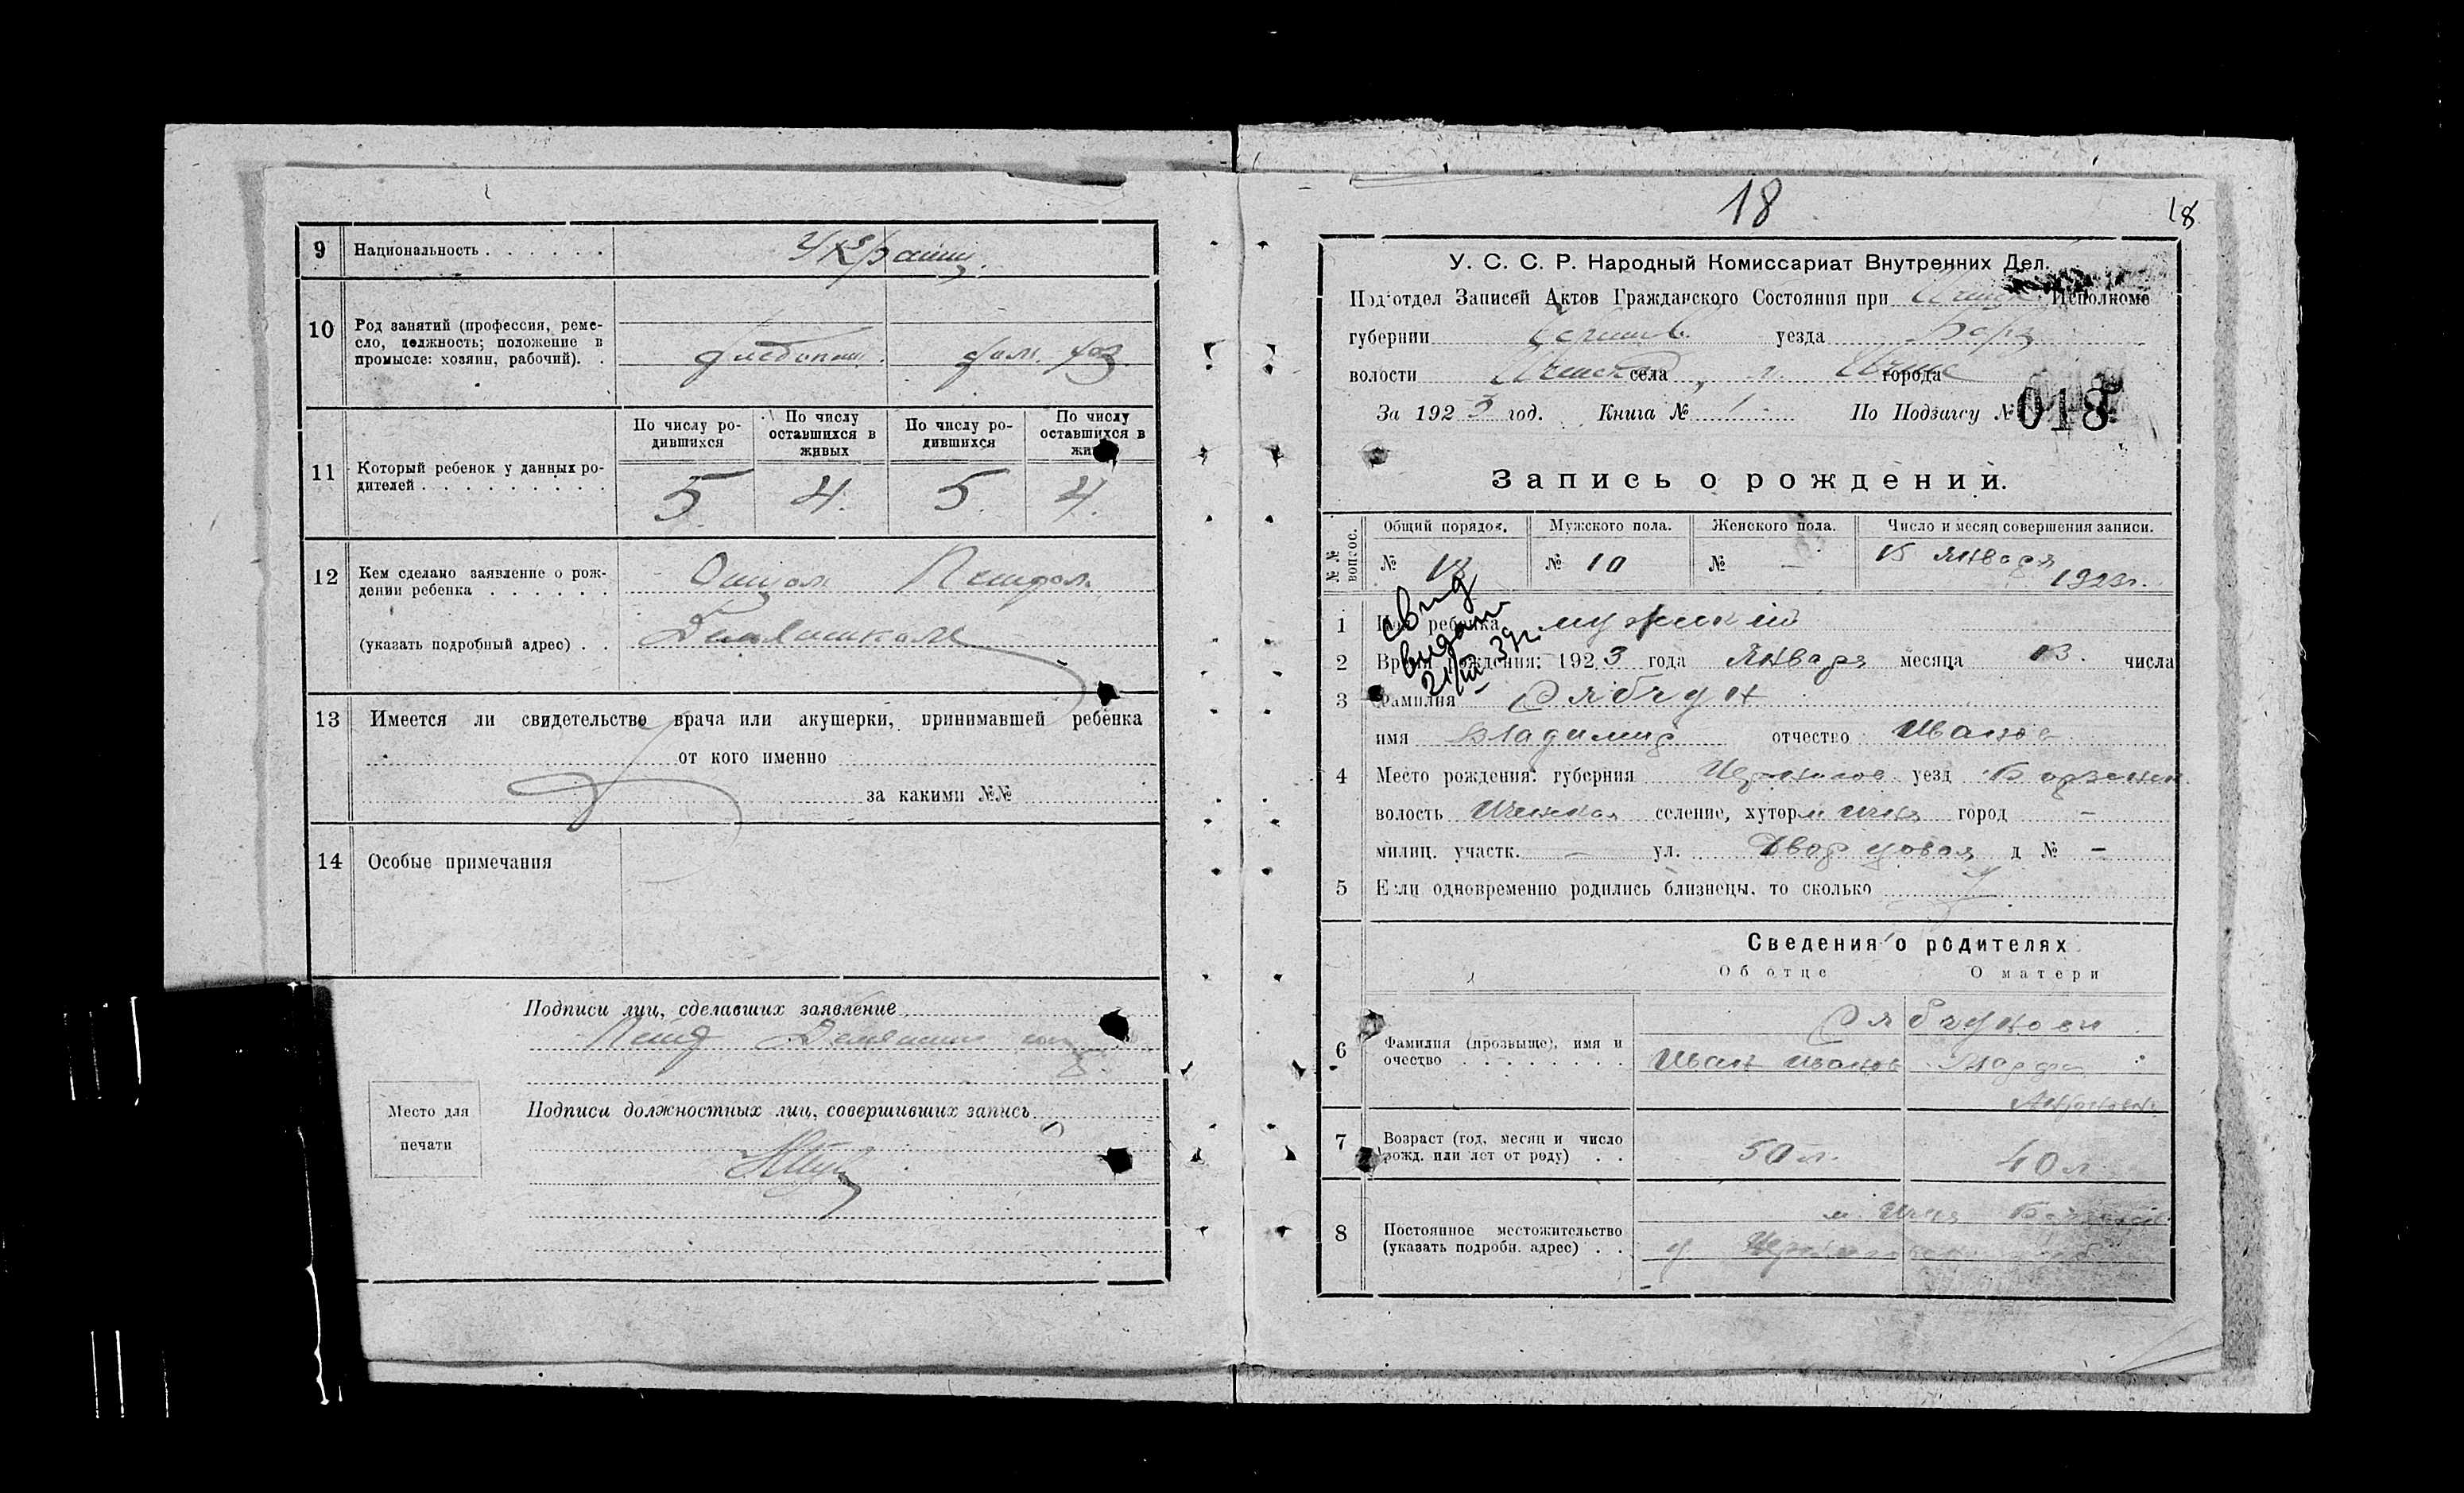 9 Национальность Украинц.
10 Род занятий (профессия, реме-
сло, должность; положение в
промысле: хозяин, рабочий).
хлебопаш. дом. хоз.
11 Который ребенок у данных ро-
дителей
По числу ро-
дившихся
По числу
оставшихся в
живых
По числу ро-
дившихся
По числу
оставшихся в
жи
5 4. 5. 4.
12 Кем сделано заявление о рож-
дении ребенка Отцом
(указать подробный адрес)
13 Имеется ли свидетельство врача или акушерки, принимавшей ребенка
от кого именно
за какими №№
14 Особые примечания
Подписи лиц, сделавших заявление
Место для
печати
Подписи должностных лиц, совершивших запись
18 18
У. С. С. Р. Народный Комиссариат Внутренних Дел.
Под'отдел Записей Актов Гражданского Состояния при Исполкоме
губернии Чернигов. уезда Борз
волости Иченской села города
За 1923 год. Книга № 1 По Подзагсу № 018
Запись о рождении.
№№ вопрос.
Общий порядок. Мужского пола. Женского пола. Число и месяц совершения записи.
№ 18 № 10 № — 15 января
1923г.
свид
видан
21/III 39г.
1 ребенка мужский
2 рождения: 1923 года Января месяца 13. числа
3 Фамилия Рябчун
имя Владимир отчество Иванов
4 Место рождения: губерния Чернигов уезд Борзенск
волость Иченская селение, хутор м Ичня город —
милиц. участк. — ул. Дворцовая д № —
5 Если одновременно родились близнецы, то сколько
Сведения о родителях
Об отце О матери
6 Фамилия (прозвыще), имя и
очество
Рябчуновы
Иван Иванов
7 Возраст (год, месяц и число
рожд. или лет от роду)
50 л. 40 л
8 Постоянное местожительство
(указать подробн. адрес)
м. Ичня Борзенск